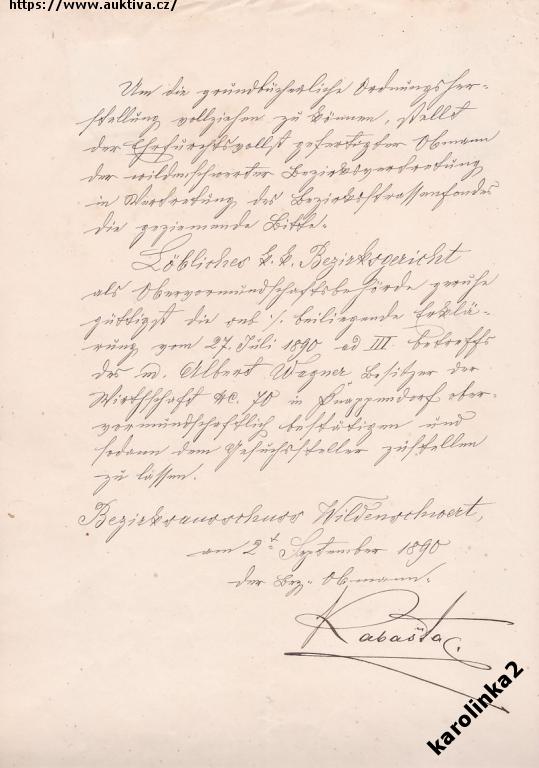 https://www.auktiva.cz/
Um die grundbücherliche Ordnungsher-
stellung vollziehen zu können, stellt
der Ehrfurchtsvollst gefertigter Obmann
der wildenschwerter Bezirksvertretung
in Vertretung des Bezirksstrassenfondes
die geziemende Bitte:
Löbliches k. k. Bezirksgericht
als Obervormundschaftsbehörde geruhe
gütigst die sub ·/. beiliegende Erklä-
rung vom 27. Juli 1890 ad III. betreffs
des m. Albert Wagner Besitzer der
Wirthschaft Nc. 70 in Knappendorf ober-
vormundschaftlich bestätigen und
sodann dem Gesuchsteller zustellen
zu lassen.
Bezirksausschuss Wildenschwert,
am 2t September 1890
der Bez. Obmann:
Rabašta
karolinka2